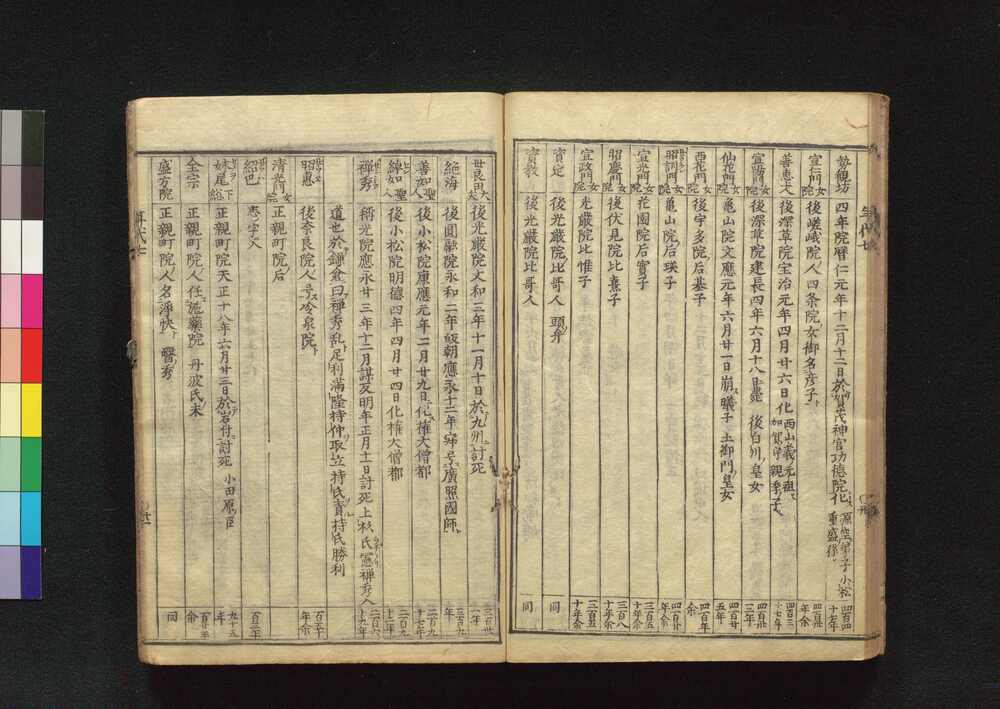 勢観坊 四年院暦仁元年十二月十二日於賀茂神官功徳院化 源空弟子小松重盛孫
宣仁門女院 後嵯峨院人四条院女御名彦子 年余
善恵大 後深草院宝治元年四月廿六日化 西山義元祖 加賀守親季子
後深草院建長四年六月十八日薨 後白川皇女 三年
仙花門女院 亀山院文應元年六月廿一日崩 曦子 土御門皇女 四百廿五年
西花門女院 後宇多院后基子 四百年余
昭訓門女院 亀山院后瑛子
宣光門女院 花園院后實子 十年余
昭慶門女院 後伏見院比憙子 三百八十年余
宣政門女院 光厳院比惟子 三百五十年余
實定 後光厳院比哥人 頭弁 同
實教 後光厳院比哥人 同
世良田大夫 後光厳院文和三年十一月十日於九州討死 三百卅一年
絶海 後圓融院永和二年皈朝應永十二年寂号廣照國師
善如聖人 後小松院康應元年二月廿九日化権大僧都 二百九十七年
綽如聖人 後小松院明徳四年四月廿四日化権大僧都
禅秀 稱光院應永廿三年十二月謀反明年正月十日討死上杦氏憲禅秀人 二百六十九年
道也於鎌倉曰禅秀乱足利満隆持仲取立持氏責持氏勝利
昭恩 後奈良院人号冷泉院 百五十年余
清光門女院 正親町院后
紹巴 百二年
妹尾下総 正親町院天正十八年六月廿三日於岩付討死 小田原臣 九十五年
全宗 正親町院人任施薬院 丹波氏末 百年余
盛方院 正親町院人名淨快 醫秀 同